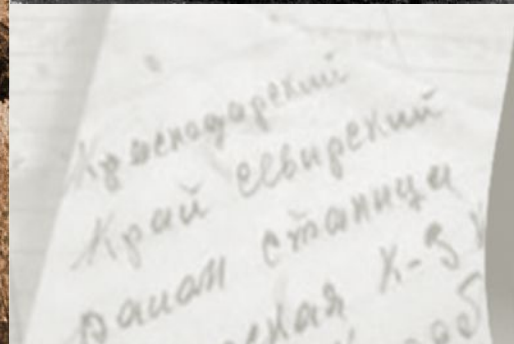 Краснодарский
Край севирский
раион станици
ская К-З